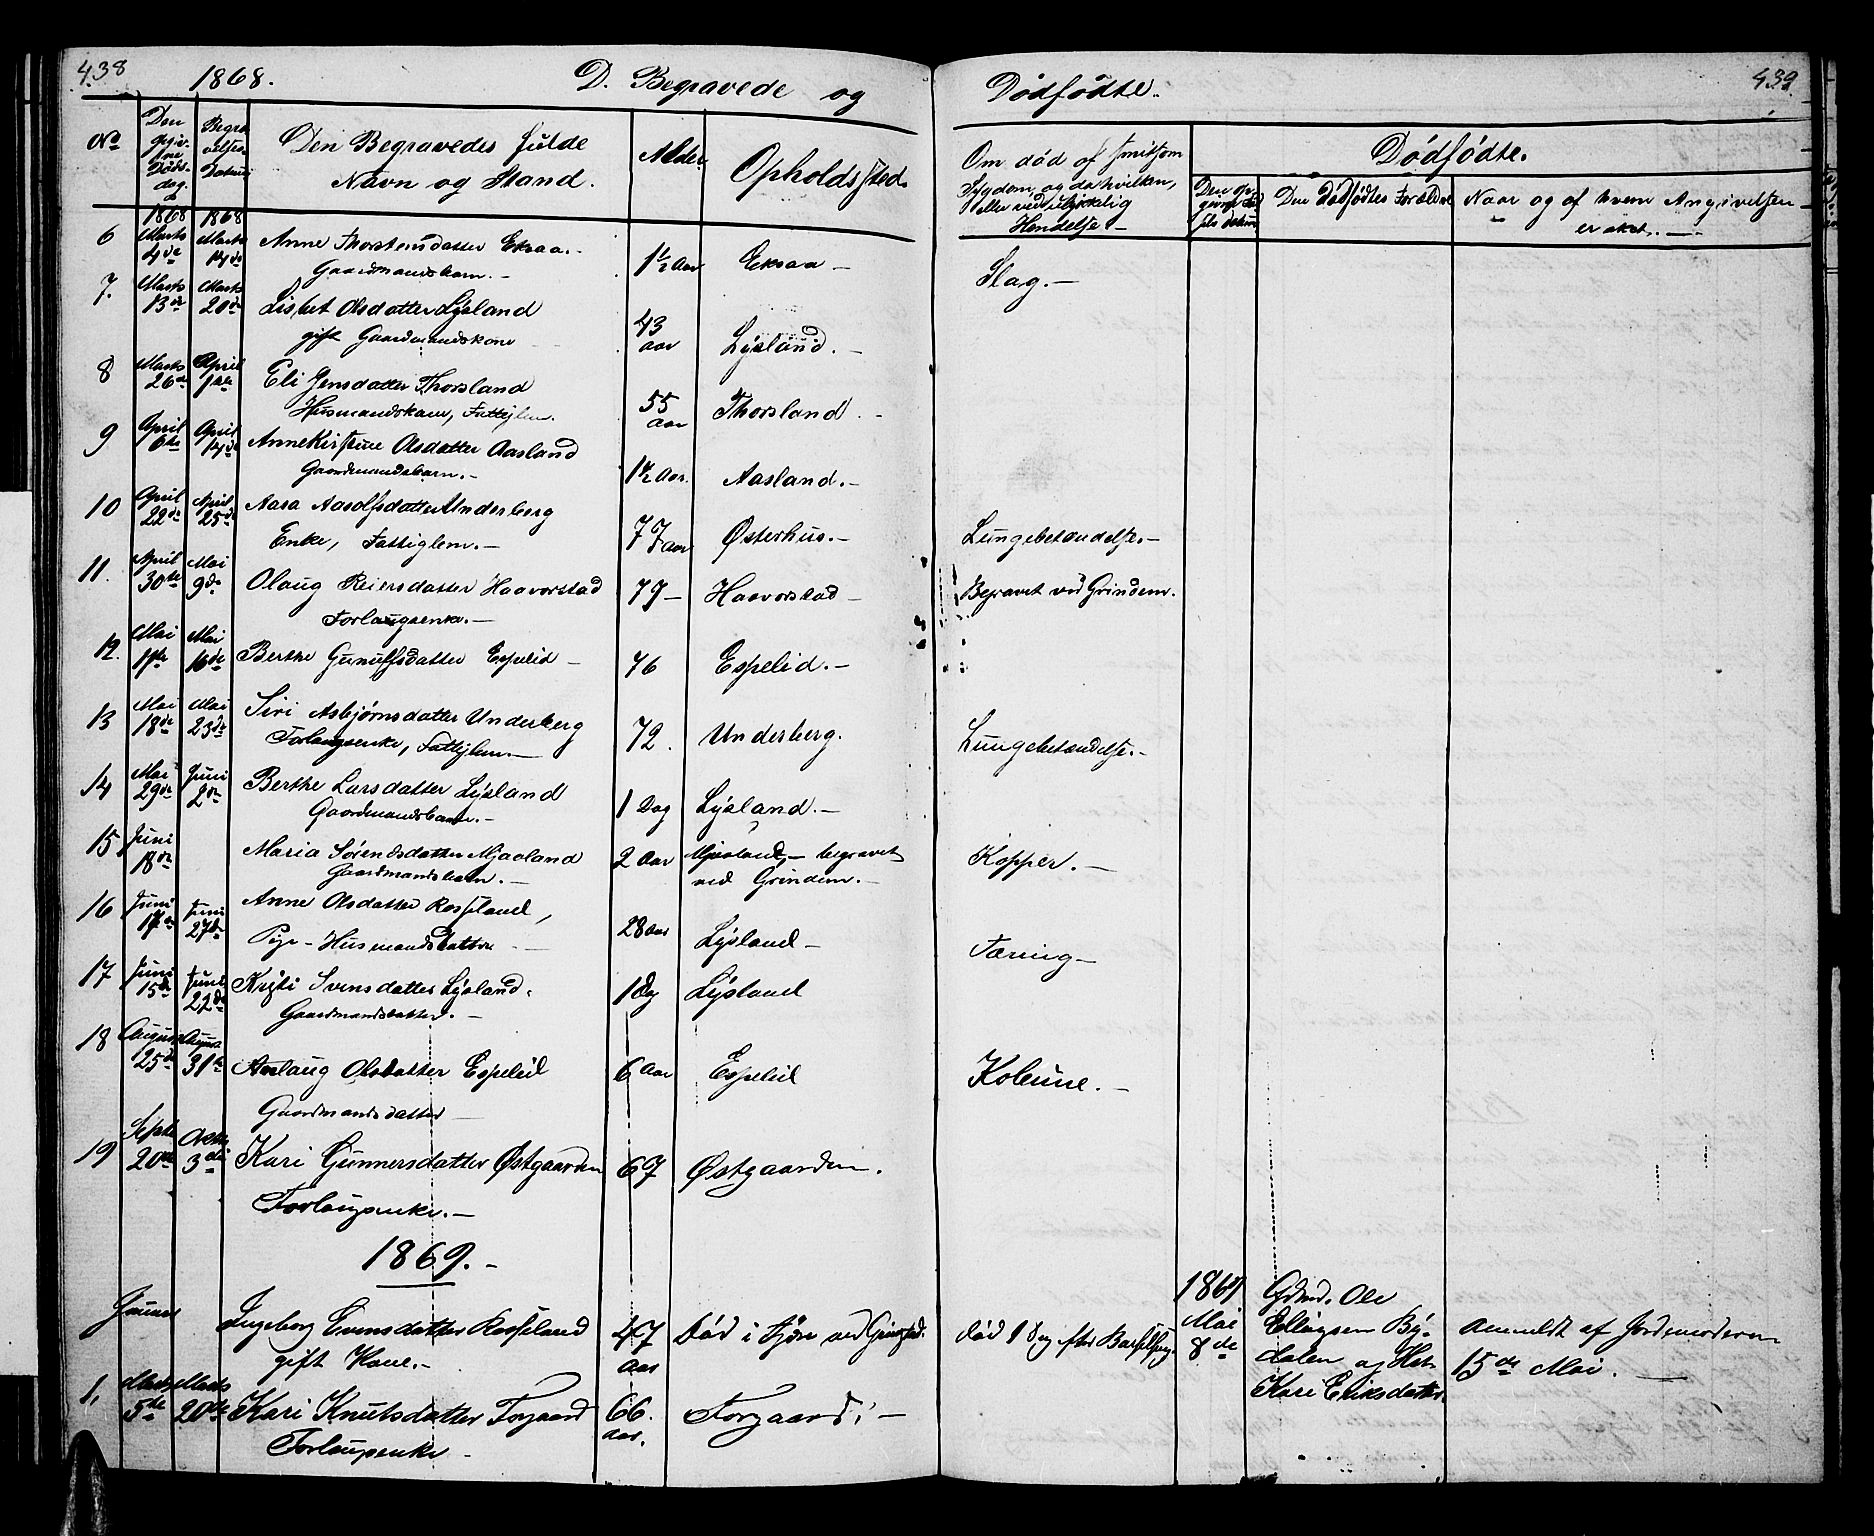 438
1868.
D. Begravede og
Dødfødte.
439
No
Den
Døds-
dag.
Datum
Den Begravedes fulde
Navn og Stand.
Alder
Opholdssted.
Om død af smitsom
Sygdom, og da hvilken,
eller ved ulykkelig
Hendelse -
Dødfødte.
Den Dødfødtes Forældre
Naar og af hvem Angivelsen
er sket. -
1868 1868
6 Marts 4de Marts 14de Anne Thorstensdatter Eksaa. -
Gaardmandsbarn. -
1½ Aar Eksaa - Slag. -
7. Marts 13de Marts 20de Lisbet Olsdatter Lysland
gift Gaardmandskone
43 aar Lysland. -
8 Marts 26de April 1ste Eli Jensdatter Thorsland
Husmandskone, Fattiglem.
55 aar Thorsland. -
9 April 6te April 14de Anne Kirstine Olsdatter Aasland
Gaardmandsbarn. -
1½ Aar. Aasland. -
10 April 22de April 25de Aasa Aasolfsdatter Underberg
Enke, Fattiglem. -
77 aar Østerhus. - Lungebetændelse. -
11. April 30te Mai 9de Olaug Reiersdatter Haavorstad
Forlaugsenke. -
79 - Haavorstad - Begravet ved Grindem.
12. Mai 11te Mai 16de Berthe Gunulfsdatter Espelid -
76 Espelid. -
13 Mai 18de Mai 23de Siri Asbjørnsdatter Underberg
Forlaugsenke, Fattiglem. -
72. Underberg. Lungebetændelse. -
14 Mai 29de Juni 2de Berthe Larsdatter Lysland
Gaardmandsbarn. -
1 Dag Lysland. -
15 Juni 18de Maria Sørensdatter Mjaaland
Gaardmandsbarn. -
2 Aar Mjaaland, - begravet
ved Grindem. -
Kopper. -
16 Juni 17de Juni 27de Anne Olsdatter Rosseland,
Pige - Husmandsdatter
28 aar Lysland - Tæring -
17 Juni 15de Juni 22de Kristi Svensdatter Lysland.
Gaardmandsdatter. -
1 Dg Lysland
18 August 25de August 31te Anlaug Olsdatter Espelid
Gaardmandsdatter -
6 Aar Espelid Kolerine. -
19 Septbr 20de Octbr 3die Kari Gunnersdatter Østgaarden
Forlaugsenke. -
67 Østgaarden.
1869. -
Januar Ingeborg Svensdatter Rosseland
gift Kone. -
47 aar Død i Fjære ved Grimstad. død 1 Dag efter Barselseng.
1869
Mai
8de
Gdmd. Ole
Ellingsen By-
dalen og Hst.
Kari Eriksdatter.
Anmeldt af Jordemoderen
15de Mai. -
1. Marts 5te Marts 20de Kari Knutsdatter Forgaard
Forlaugsenke -
66. aar. Forgaard; -